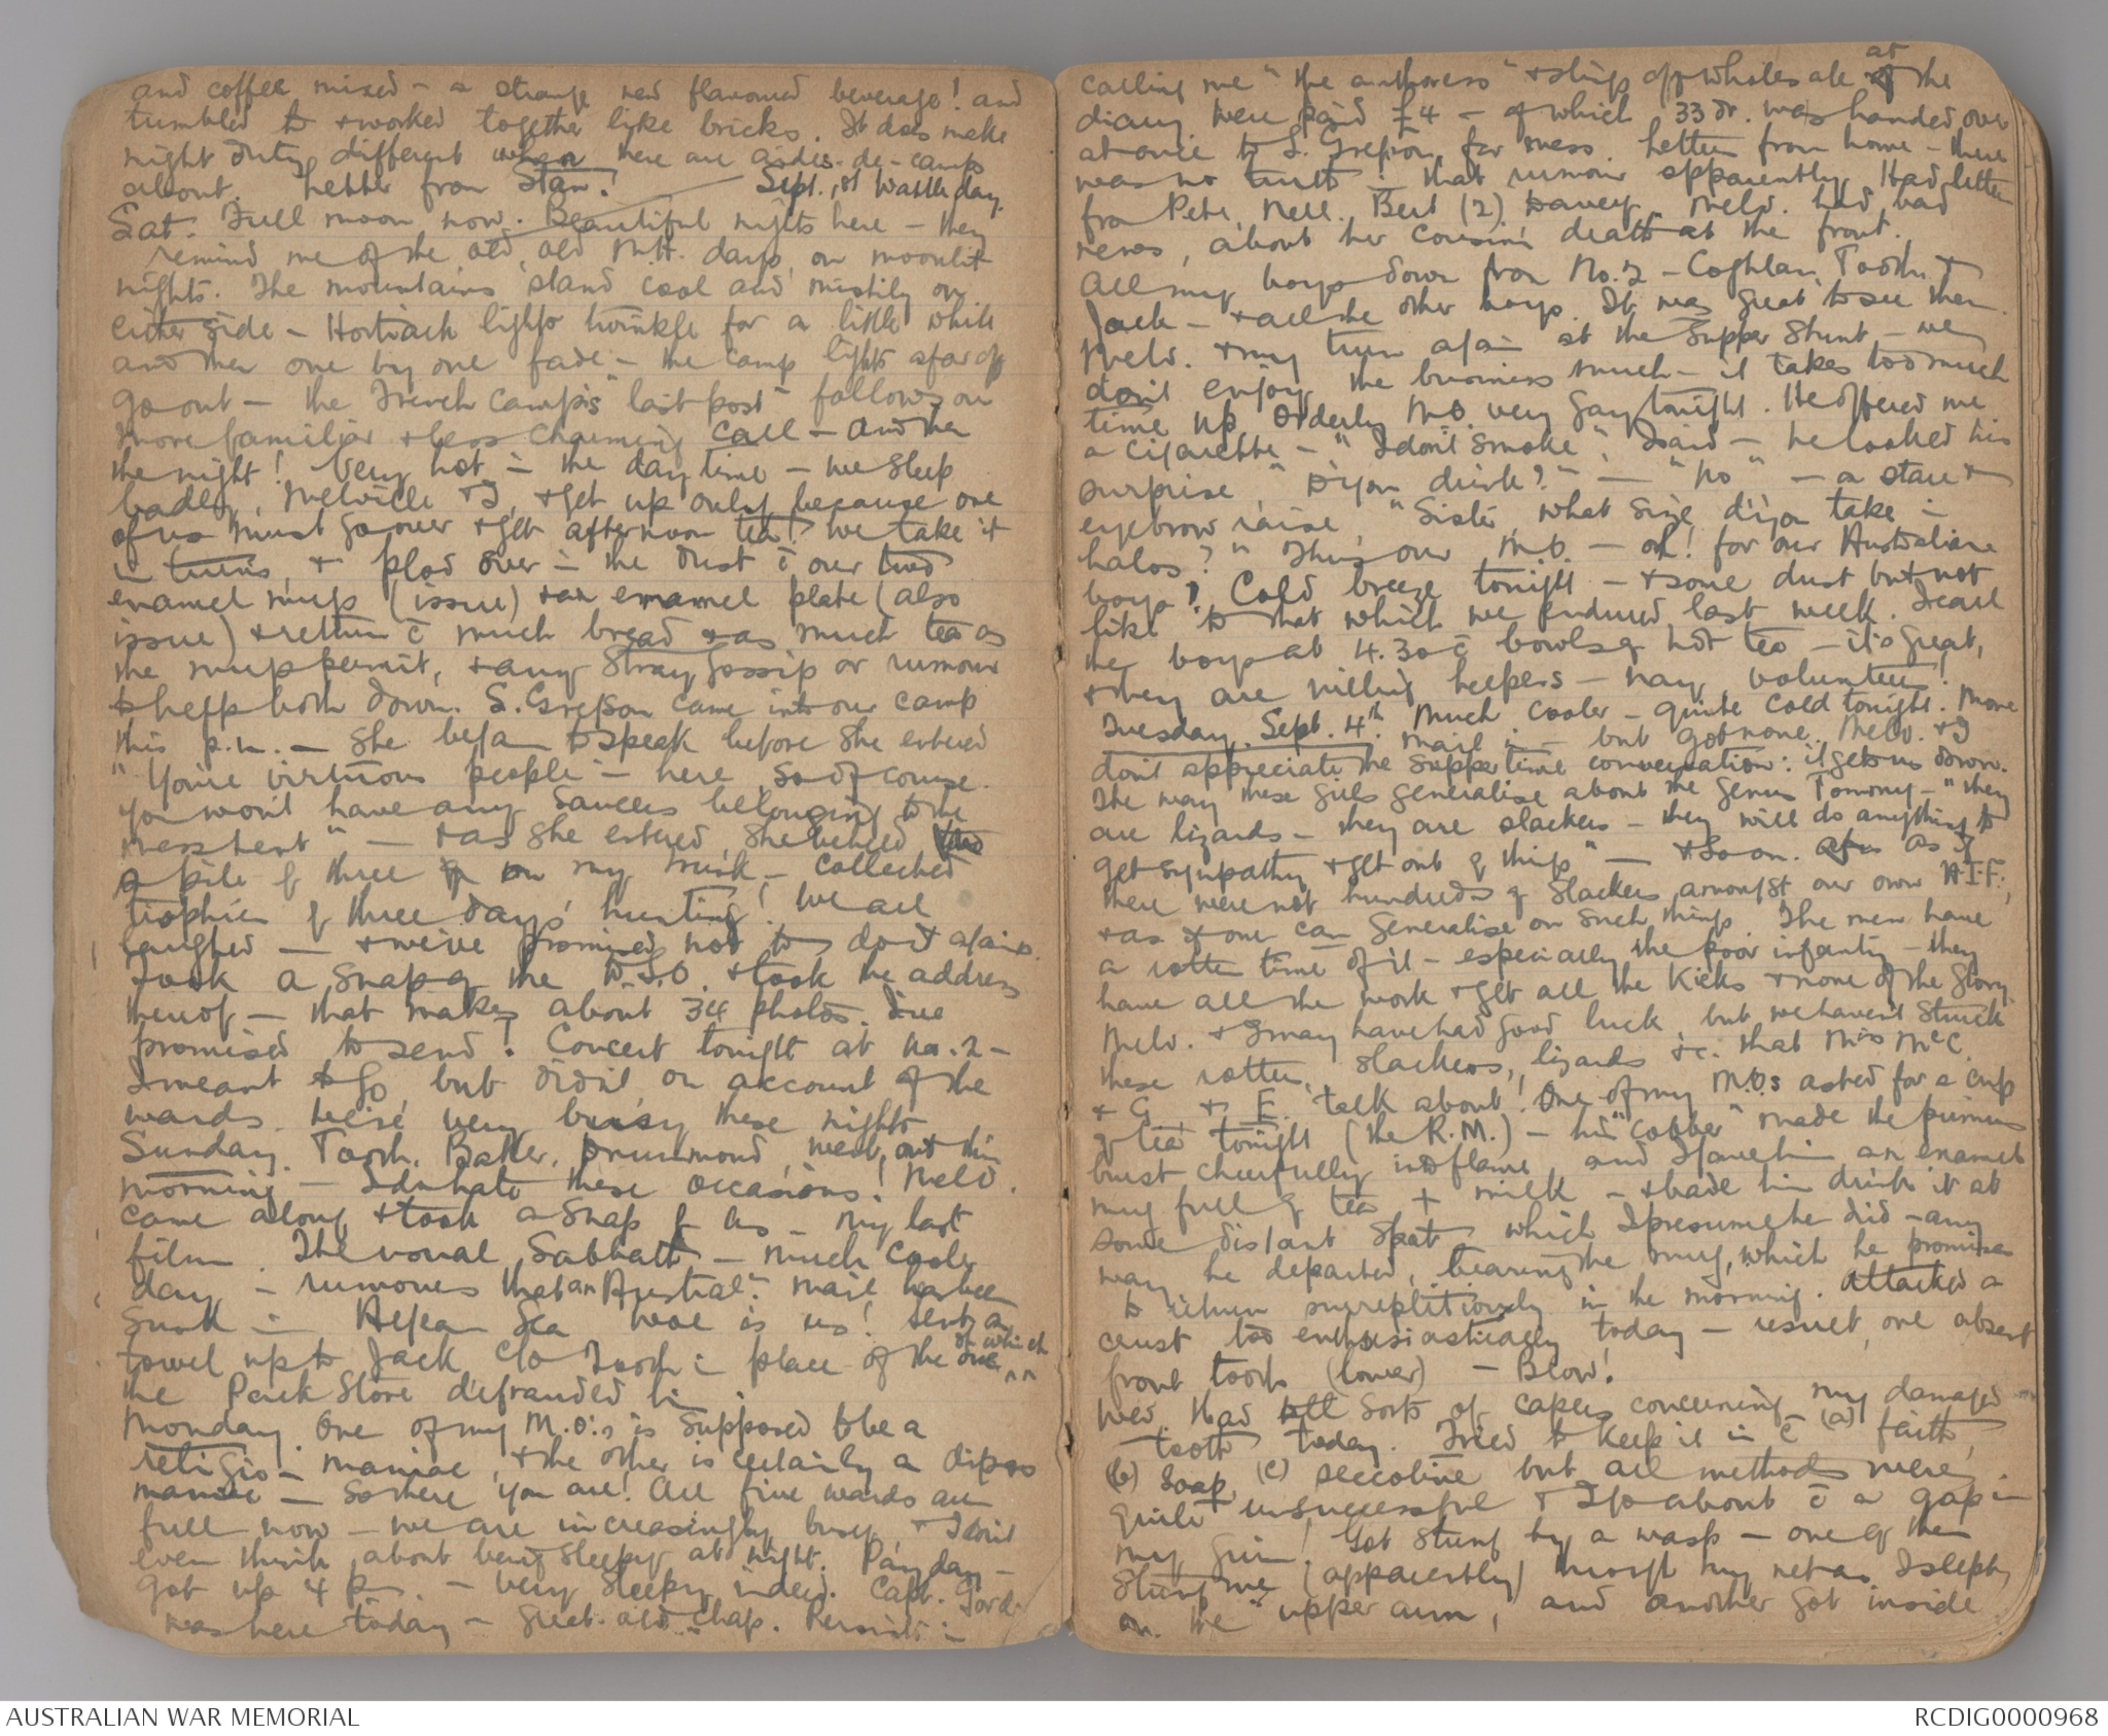 and coffee mixed – a strange new flavoured beverage! and
tumbled to & worked together like bricks. It does make
night duty different when there are aides-de-camp
about. Letter from Stan! Sept. 1st Wattle day.
Sat. Full moon now. Beautiful nights here – they
remind me of the old, old M.H. days, on moonlit
nights. The mountains stand cool and mistily on
either side – Hortiach lights twinkle for a little while
and then one by one fade – the camp lights afar off
go out – the French camp's "last post" follows on
more familiar & less charming call – and then
the night! Very hot in the day time – we sleep
badly, Melville & I, & get up only because one
of us must go over & get afternoon tea! We take it
in turns, & plod over in the dust c̄ our two
enamel mugs (issue) & an enamel plate (also
issue) & return c̄ much bread & as much tea as
the mugs permit, & any stray gossip or rumour
to help both down. S. Gregson came into our camp
this p.m. – she began to speak before she entered
"You're virtuous people – here, so of course
you won't have any saucers belonging to the
mess tent" – & as she entered, she beheld
a pile of three on my trunk – collected
trophies of three days' hunting! We all
laughed – & we've promised not to do it again.
Took a snap of the D.S.O. & took the address
thereof – that makes about 34 photos I've
promised to send! Concert tonight at No. 2 –
I meant to go, but didn't on account of the
wards. We're very busy these nights.
Sunday. Tooth, Baker, Drummond, went out this
morning – I do hate these occasions! Melv.
came along & took a snap of us – my last
film. The usual Sabbath – much cooler
day – rumours that an Austral:n mail has been
sunk in Aegean Sea woe is us! Sent a
towel up to Jack c/o Tooth in place of the one of which
the Pack Store defrauded him
Monday. One of my M.O:s is supposed to be a
religio-maniac, & the other is certainly a dipso
maniac – so there you are! All five wards are
full now – we are increasingly busy & I don't
even think about being sleepy at night. Pay day –
got up 4 pm. – very sleepy indeed. Capt. Gord
was here today – great old chap. Persists in
calling me "the authoress" & slings off wholesale at the
diary. Were paid £4 – of which 33 dr. was handed over
at once to S. Gregson for mess. Letter from home – there
was no truth in that rumour apparently. Had letters
fro Pete, Nell, Bert (2) Davey. Melv. had bad
news, about her cousin's death at the front.
All my boys down from No. 2 – Coghlan, Tooth, &
Jack – & all the other boys. It was great to see them.
Melv. & my turn again at the supper stunt – we
don't enjoy the business much – it takes too much
time up. Orderly M.O. very gay tonight. He offered me
a cigarette – "I don't smoke", I said – he looked his
surprise, "D'you drink?" — "No" – a stare &
eyebrow raise "Sister, what size d'you take in
halos?" Thus our M.O. – oh! for our Australian
boys! Cold breeze tonight – & some dust but not
like to that which we endured last week. I call
the boys at 4.30 c̄ bowls of hot tea – it's great,
& they are willing helpers – nay, volunteers!
Tuesday. Sept. 4th. Much cooler – quite cold tonight. More
mail in – but got none. Melv. & I
don't appreciate the supper time conversation: it gets us down.
The way these girls generalise about the genus Tommy – "they
are lizards – they are slackers – they will do anything to
get sympathy & get out of things" — & so on. As if
there were not hundreds of slackers amongst our own A.I.F.,
& as if one can generalise on such things. The men have
a rotten time of it – especially the poor infantry – they
have all the work & get all the kicks & none of the glory.
Melv. & I may have had good luck, but we haven't struck
these rotten, slackers, lizards &c. that Miss McC.
& G. & E. talk about! One of my M.O:s asked for a cup
of tea tonight (the R.M.) – his "cobber" made the primus
burst cheerfully into flame, and I gave him an enamel
mug full of tea + milk – & bade him drink it at
some distant spot, which I presume he did – any
way he departed, bearing the mug, which he promises
to return surreptitiously in the morning. Attacked a
crust too enthusiastically today – result, one absent
front tooth (lower) – Blow!
Wed. Had all sorts of capers concerning my damaged
tooth today. Tried to keep it in c̄ (a) faith,
(b) soap, (c) seccotine but all methods were
quite unsuccessful & I go about c̄ a gap in
my grin! Got stung by a wasp – one of them
stung me (apparently) through my net as I slept,
on the upper arm, and another got inside
AUSTRALIAN WAR MEMORIAL
RCDIG0000968